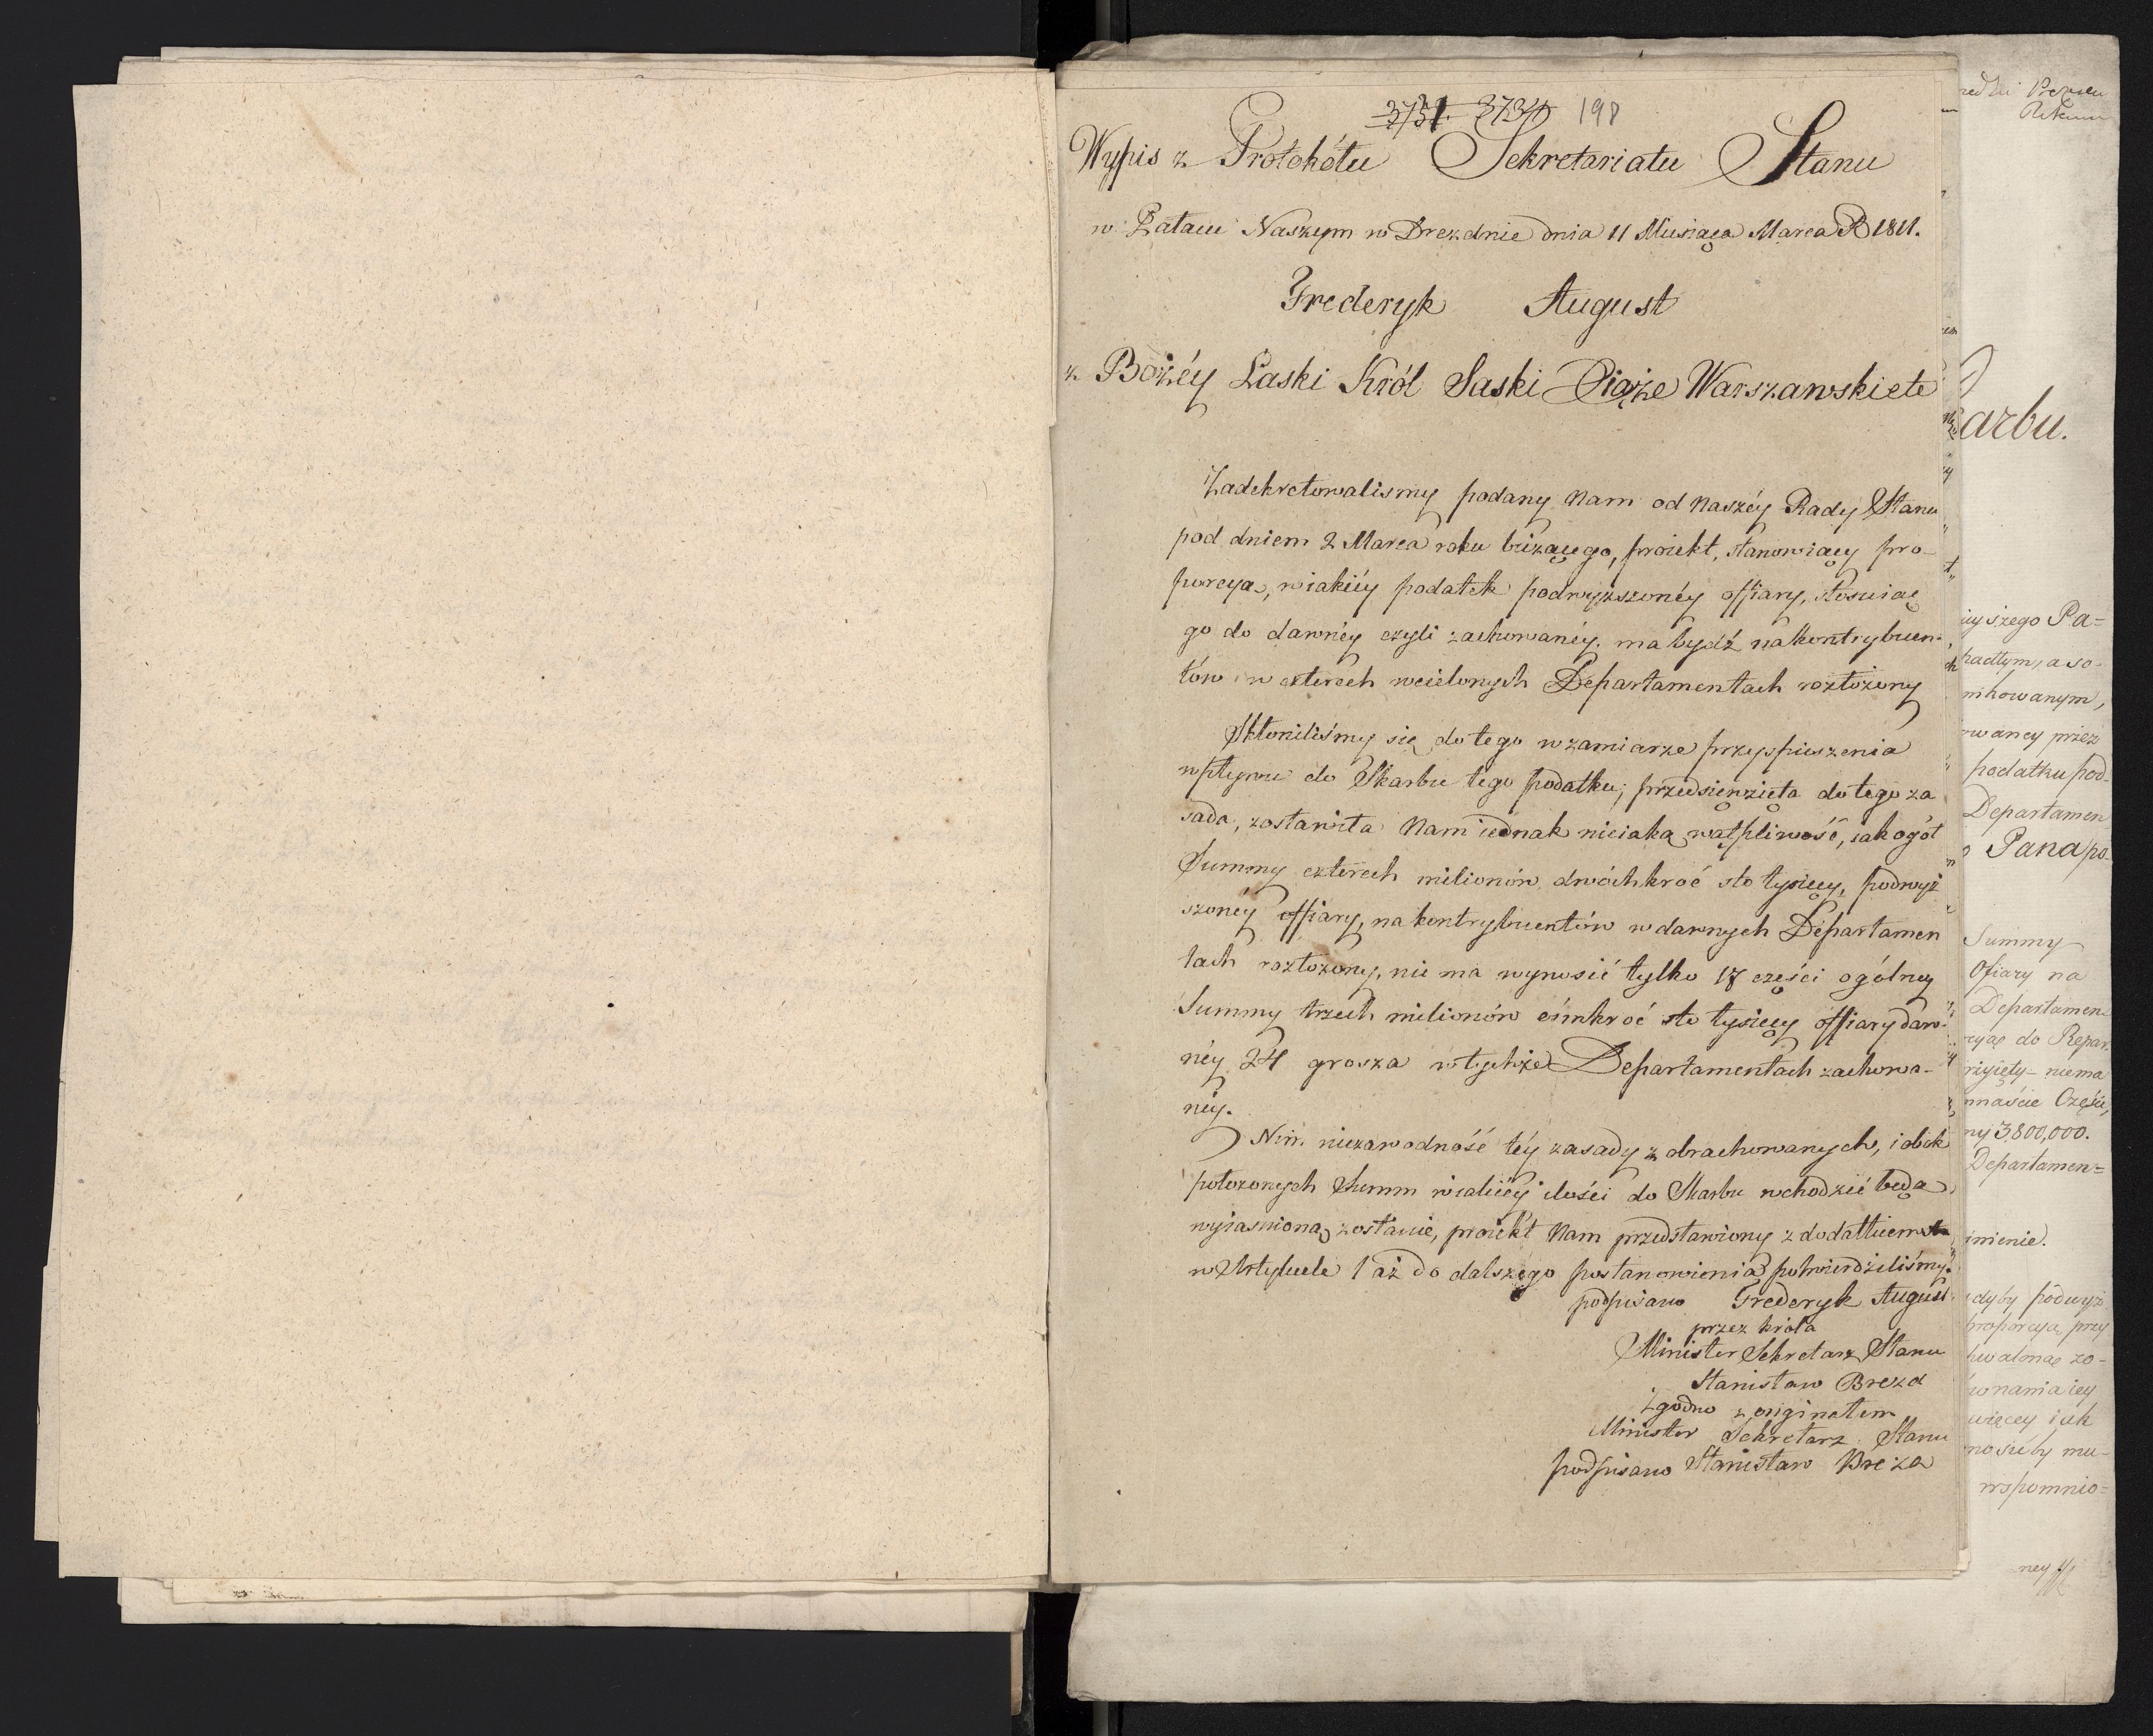 3731. 3734 198
Wypis z Protokółu Sekretariatu Stanu
w Pałacu Naszym w Dreznie dnia 11 Miesiąca Marca R 1811.
Frederyk August
z Bożéy Łaski Król Saski Xiąże Warszawski etc
Zadekretowalismy podany Nam od Naszéy Rady Stanu
pod dniem 2 Marca roku bieżącego, proiekt, stanowiący pro-
porcyą, w iakiéy podatek podwyższonéy offiary, stosuiąc
go do dawnéy czyli zachowanéy, ma bydź na kontrybuen-
tów w czterech wcielonych Departamentach rozłożony
Skłoniliśmy się do tego w zamiarze przyspieszenia
wpływu do Skarbu tego podatku; przedsięwzięta do tego za
sada, zostawiła Nam iednak nieiaką wątpliwość, iak ogół
Summy czterech milionów dwóchkroć sto tysięcy, podwyż
szoney offiary, na kontrybuentów w dawnych Departamen
tach rozłożony, nie ma wynosić tylko 17 części ogólney
Summy trzech milionów ośmkroć sto tysięcy offiary daw-
néy 24 grosza w tychże Departamentach zachowa-
néy.
Nim niezawodność téy zasady z obrachowanych, i obok
położonych Summ w iakiéy ilości do Skarbu wchodzić będą,
wyiasnioną zostanie, proiekt Nam przedstawiony z dodatkiem
w Artykule 1 aż do dalszego postanowienia potwierdziliśmy.
podpisano Frederyk August
przez króla
Minister Sekretarz Stanu
Stanisław Breza
zgodno z originałem
Minister Sekretarz Stanu
podpisano Stanisław Breza
arbu.
iyszego Pa=
padłym, a so-
nikowanym,
owaney przez
podatku pod-
Departamen
Pana po-
Summy
Ofiary na
Departamen-
cyą do Repar-
rzyięty – niema
nnaście Części,
ny 3,800,000.
Departamen=
inienie.
dyby podwyż
proporcyą przy
hwaloną zo-
ównania iey
więcey iak
nosićby mu-
wspomnio=
ney